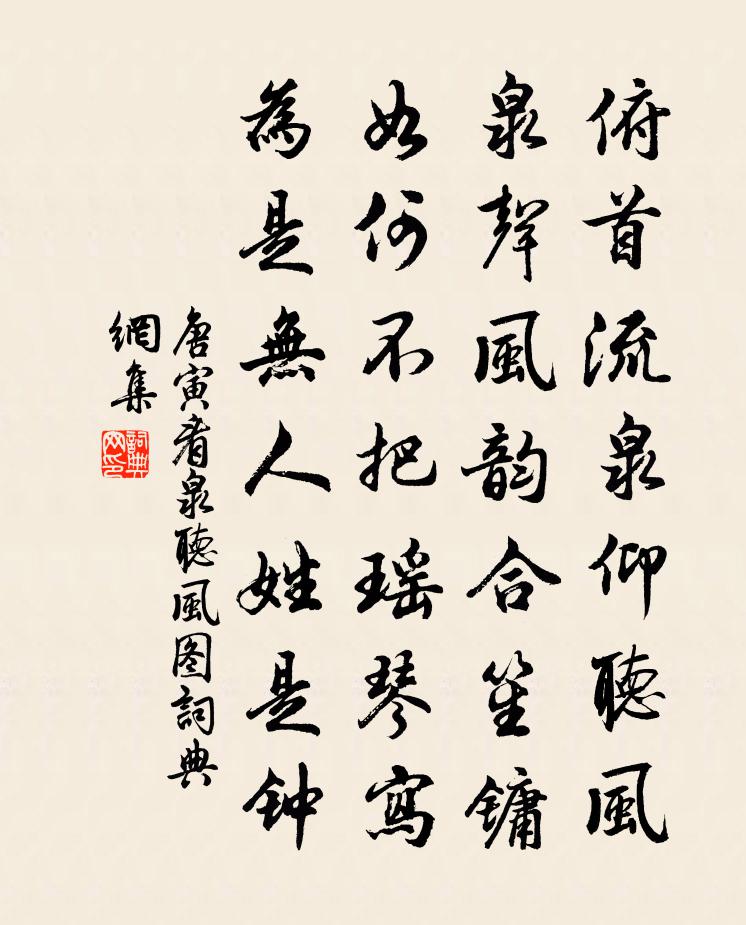 俯首流泉仰聽風
泉聲風韵合笙鏞
如何不把瑶琴寫
為是無人姓是钟
唐寅看泉聽風图詞典
網集
詞典
网印